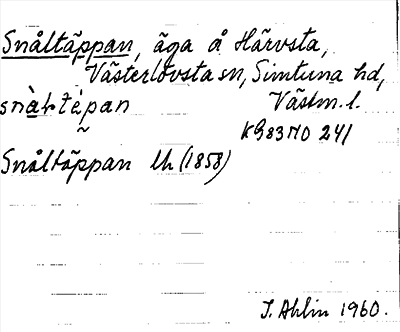 Snåltäppan, äga å Härvsta,
Västerlövsta sn, Simtuna hd,
snàltèpan Västm. l.
KG83NO 241
Snåltäppan Lh (1858)
I. Ahlin 1960.